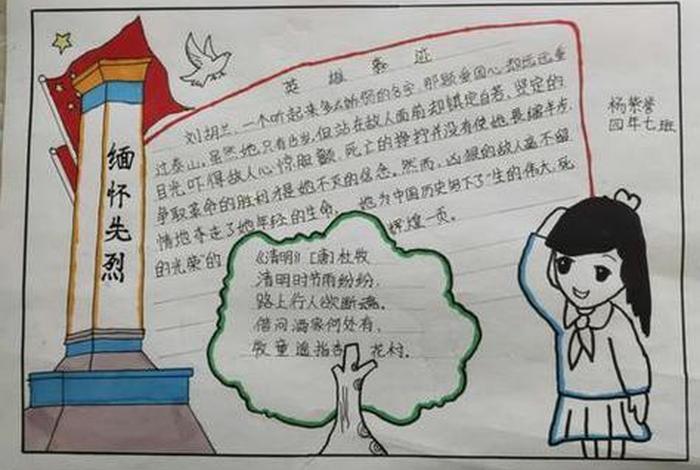 缅怀先烈
英雄事迹
刘胡兰,一个听起来多么娇弱的名字,那颗爱国心却远远重
过泰山。虽然她只有15岁,但站在敌人面前却镇定自若,坚定的
目光,吓得敌人心惊胆颤,死亡的狰狞并没有使她畏缩半步,
争取革命的胜利才是她不灭的信念。然而,凶狠的敌人毫不留
情地夺走了她年轻的生命。她为中国历史写下了"生的伟大,死
的光荣"的 辉煌一页。
《清明》[唐]杜牧
清明时节雨纷纷,
路上行人欲断魂。
借问酒家何处有,
牧童遥指杏花村。
杨紫誉
四年七班